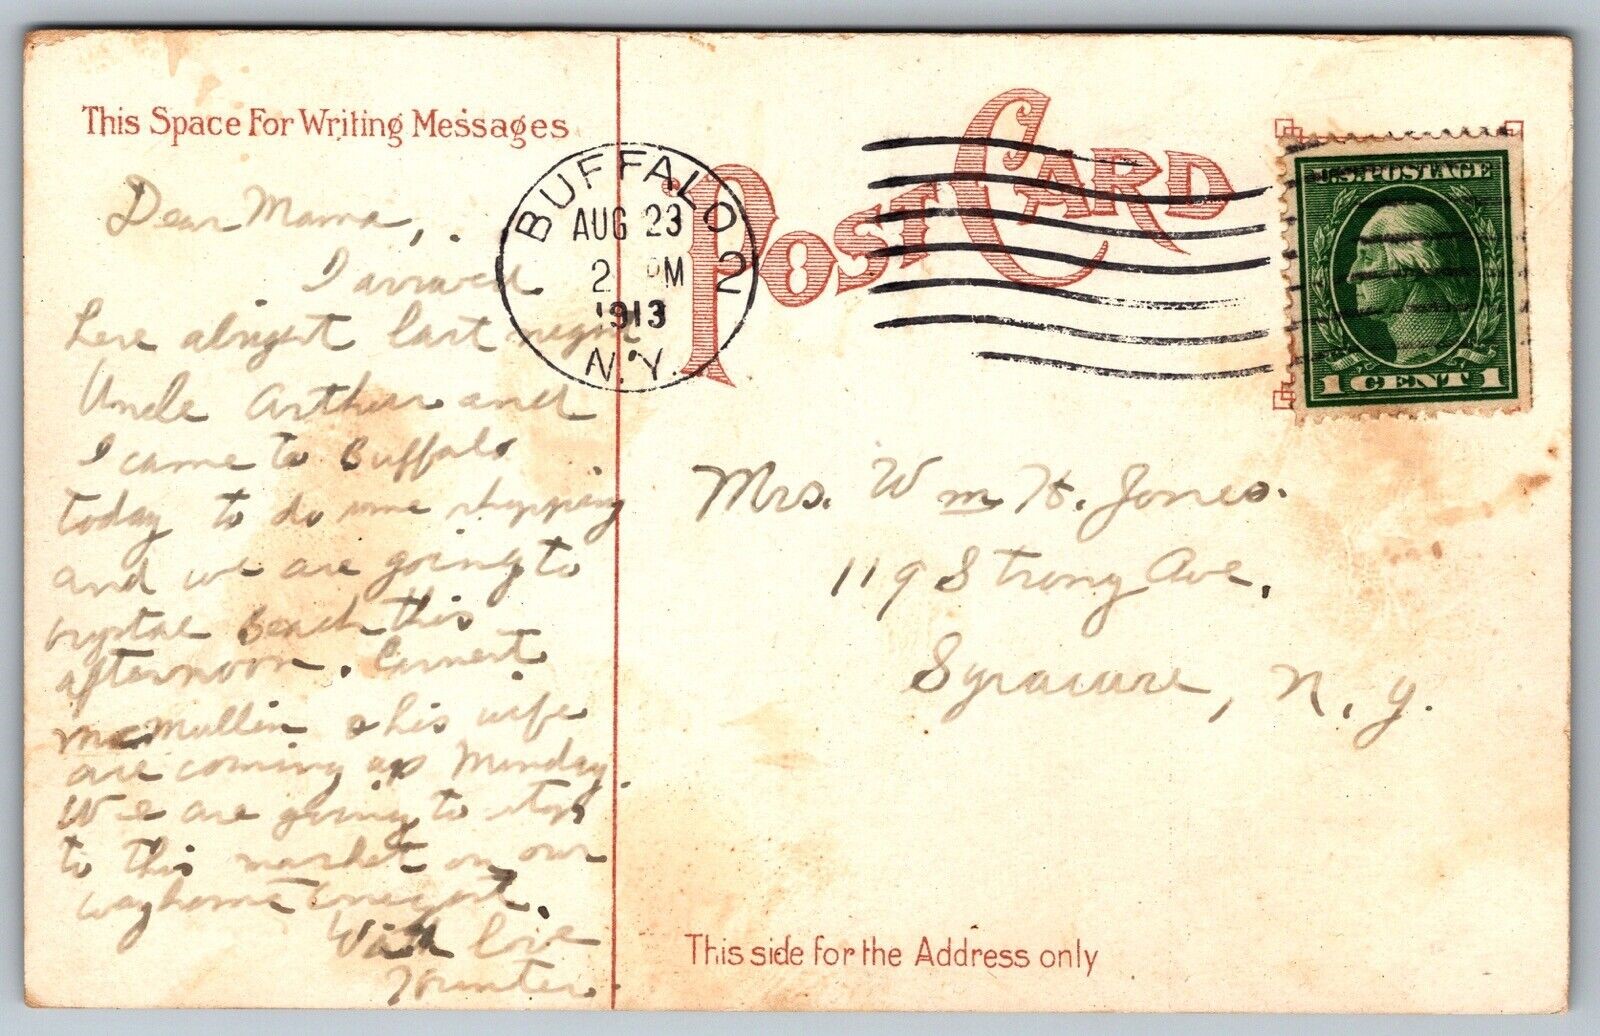 This Space For Writing Messages
POST CARD
BUFFALO 2
AUG 23
2 PM
1913
N.Y.
U.S. POSTAGE
1 CENT 1
Dear Mama,
I arrived
here alright last night
Uncle Arthur and
I came to Buffalo
today to do some shopping
and we are going to
Crystal Beach this
afternoon. Earnest
McMullin & his wife
are coming up Monday.
We are going to stop
to this market on our
way home
With love
Mrs. Wm H. Jones.
119 Strong Ave,
Syracuse, N.Y.
This side for the Address only